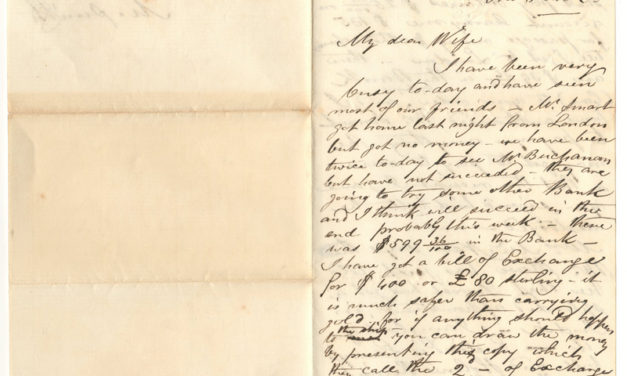 My dear Wife
I have been very
busy to-day and have seen
most of our friends - Mr Smart
got home last night from London
but got no money - we have been
twice to-day to see Mr Buchanan
but have not succeeded - they are
going to try some other Bank
and I think will succeed in the
end probably this week - there
was $599 36/100 in the Bank -
I have got a bill of Exchange
for $400 or £80 sterling - it
is much safer than carrying
gold for if anything should happen
to the ship you can draw the money
by presenting this copy which
they call the 2 - of Exchange